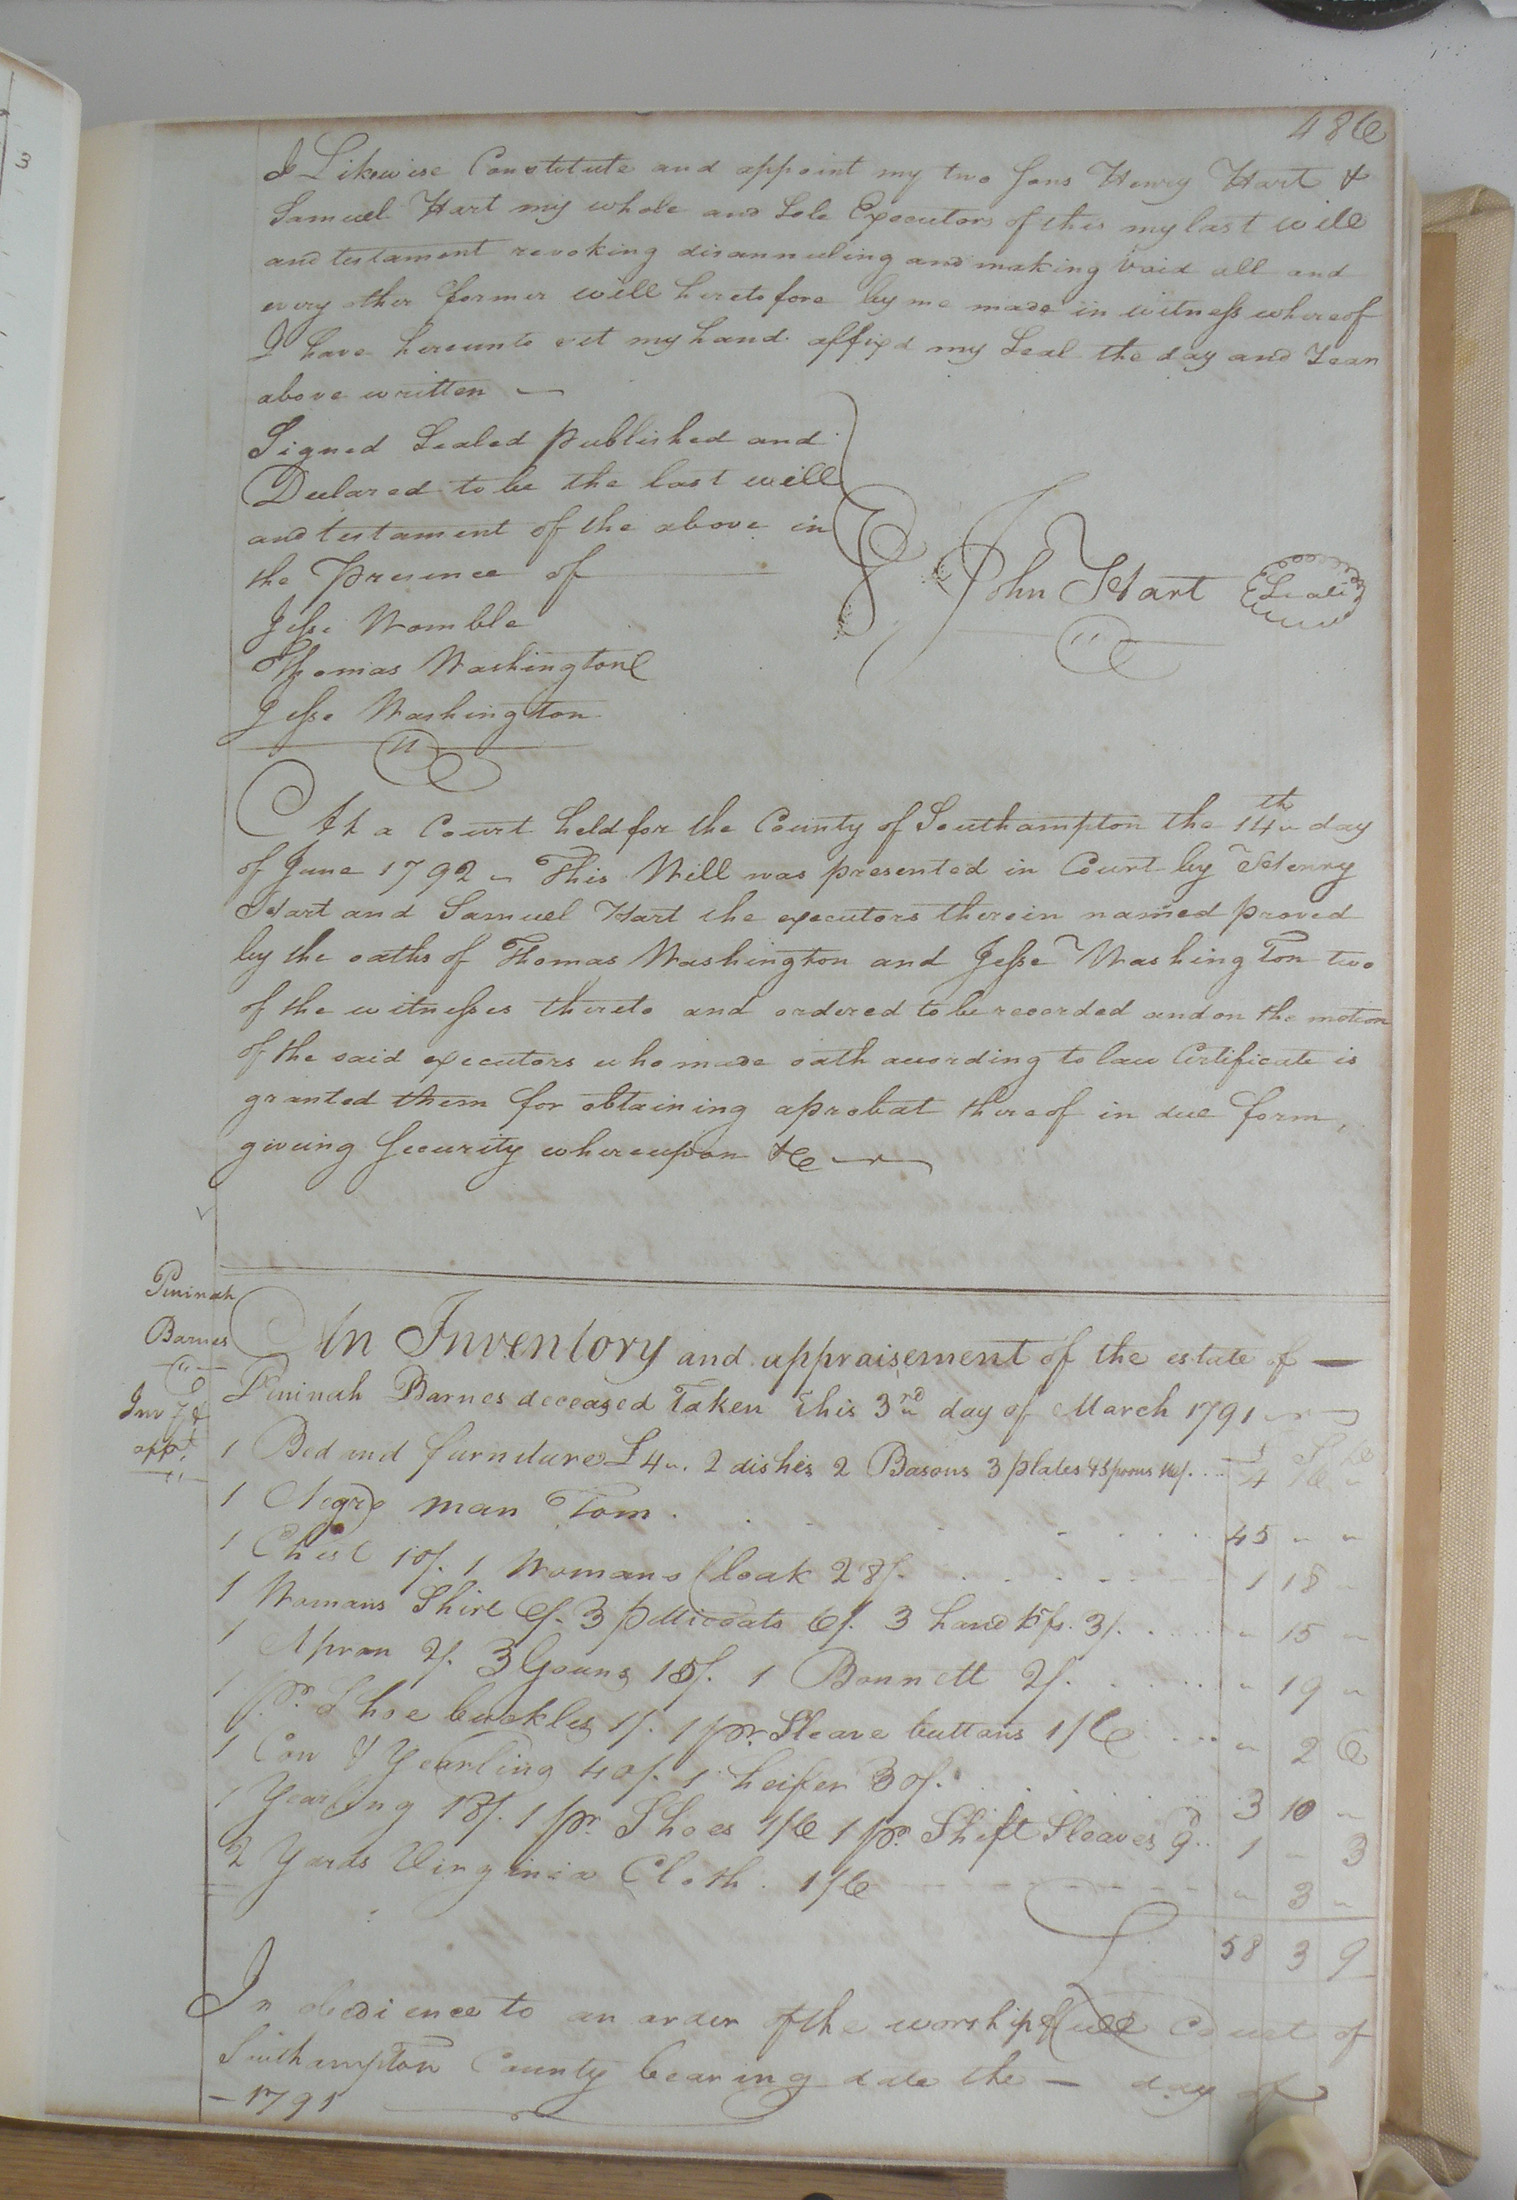 486
I Likewise Constitute and appoint my two sons Henry Hart &
Samuel Hart my whole and Sole Executors of this my last will
and testament revoking disannuling and making Void all and
every other former will heretofore by me made in witness whereof
I have hereunto set my hand affixd my Seal the day and Year
above written
Signed Sealed published and
Declared to be the last will
and testament of the above in
the Presence of
Jesse Womble
Thomas Washington
Jesse Washington
John Hart Seal
At a Court held for the County of Southampton the 14th day
of June 1792 This Will was presented in Court by Henry
Hart and Samuel Hart the executors therein named proved
by the oaths of Thomas Washington and Jesse Washington two
of the witnesses thereto and ordered to be recorded and on the motion
of the said executors who made oath according to law Certificate is
granted them for obtaining aprobat thereof in due form,
giveing security whereupon &c
Peninah
Barnes
Inv &
appt
An Inventory and appraisement of the estate of
Peninah Barnes deceased Taken This 3rd day of March 1791
1 Bed and furniture £4. 2 dishes 2 Basons 3 plates & Spoons 16/. 4 16
1 Negro man Tom 45
1 Chest 10/. 1 Womans Cloak 28/. 1 18
1 Womans Shirt 6/. 3 petticoats 6/. 3 handkfs. 3/. 15
1 Apron 2/. 3 Gouns 15/. 1 Bonnett 2/. 19
1 pr. Shoe buckles 1/. 1 pr. Sleave buttans 1/6 2 6
1 Cow & Yearling 40/. 1 heifer 30/. 3 10
1 Yearling 18/. 1 pr. Shoes 1/6 1 pr. Shift Sleaves 9d 1 3
2 Yards Virginia Cloth. 1/6 3
58 3 9
In obedience to an order of the worshipfull Court of
Southampton County bearing date the — day of
— 1791